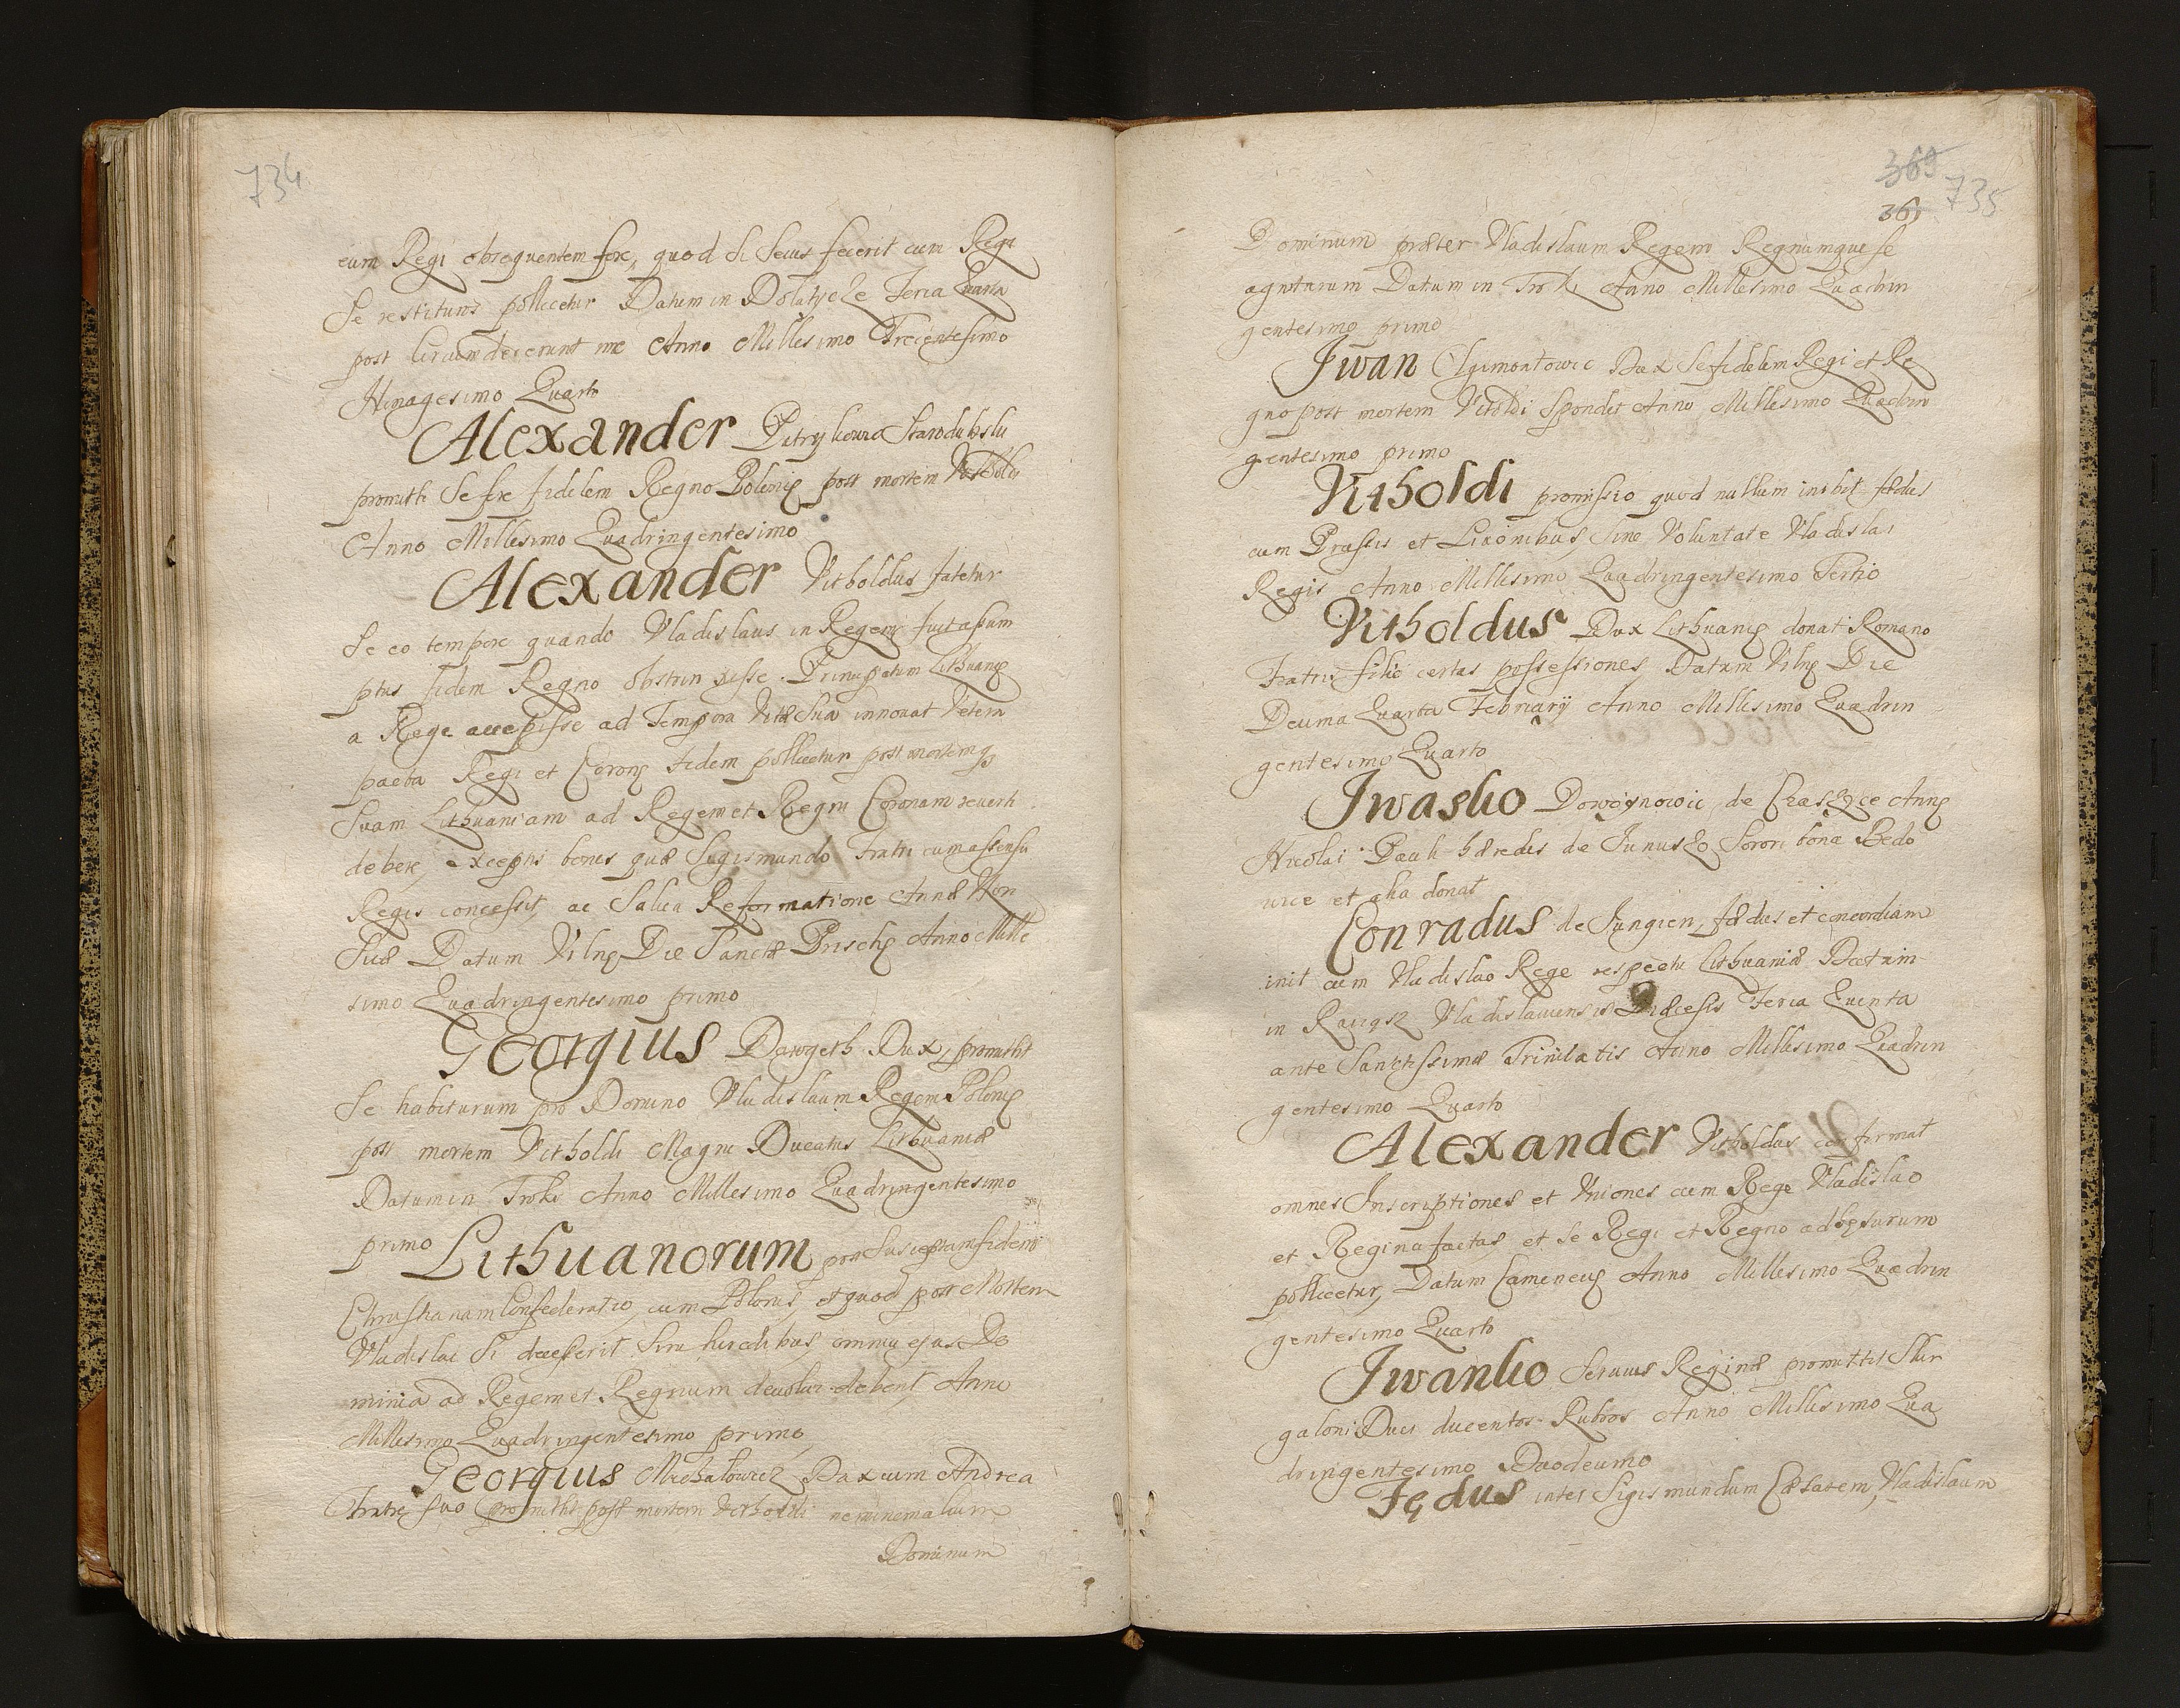 734
eum Regi obsequentem fore, quod si secus fecerit eum Regi
se restituru pollicetur Datum in Dolatycze Feria Quarta
post Anno Millesimo Trecentesimo
Nonagesimo Quarto
Alexander Patrykowicz Starodubski
promittit Se fore fidelem Regno Polonię post mortem Witholdi
Anno Millesimo Quadringentesimo
Alexander Vitholdus fatetur
Se eo tempore quando Vladislaus in Regem fuit assum
ptus fidem Regno obstrinxisse. Principatum Lithuanię
a Rege accepisse ad Tempora Vitæ Suæ innovat Vetera
pacta Regi et Coronę fidem pollicetur post mortemq
Suam Lithuaniam ad Regem et Regni Coronam reverti
debere, exceptis bonis quæ Sigismundo Fratri cum assensu
Regis concessit, ac Salva Reformatione Annæ Uxoris
Suæ Datum Vilnę Die Sanctæ Priscę Anno Mille
simo Quadringentesimo primo
Georgius Dowgeth Dux, promittit
Se habiturum pro Domino Vladislaum Regem Polonię
post mortem Vitholdi Magni Ducatus Lithuaniæ
Datum in Troki Anno Millesimo Quadringentesimo
primo
Lithuanorum post Susceptam fidem
Christianam Confederatio, cum Polonis, et quod post Mortem
Vladislai Si decesserit Sine heredibus omnia ejus Do
minia ad Regem et Regnum devolvi debent, Anno
Millesimo Quadringentesimo primo
Georgius Michalowicz Dux cum Andrea
Fratre suo promittit post mortem Vitholdi neminem alium
Dominum
369
361
735
Dominum præter Vladislaum Regem Regnumque se
agniturum Datum in Troki Anno Millesimo Quadrin
gentesimo primo
Jwan Olgimontowic Dux Se fidelem Regi et Re
gno post mortem Vitoldi Spondet Anno Millesimo Quadrin
gentesimo primo
Vitholdi promissio quod nullum inibit fædus
cum Prussis et Livonibus, Sine Voluntate Vladislai
Regis Anno Millesimo Quadringentesimo Tertio
Vitholdus Dux Lithuanię donat Romano
Fratris filio certas possessiones, Datum Vilnę Die
Decima Quarta Februarÿ Anno Millesimo Quadrin
gentesimo Quarto
Jwasko Dowoynowic de Annę
Nicolai Pauli hæredis de Junusz Sorori bona Bedo
wice et alia donat
Conradus de Jungien, fædus et concordiam
init cum Vladislao Rege respectu Lithuaniæ Datum
in Raciąsz Vladislaviensis Diæcesis Feria Quinta
ante Sanctissimæ Trinitatis Anno Millesimo Quadrin
gentesimo Quarto
Alexander Vitholdus confirmat
omnes Inscriptiones et Vniones cum Rege Vladislao
et Regina factas et Se Regi et Regno adhęsurum
pollicetur, Datum Camenecę Anno Millesimo Quadrin
gentesimo Quarto
Jwanko Servus Reginæ promittit Skir
galoni Duci ducentos Rubros Anno Millesimo Qua
dringentesimo Duodecimo
Fędus inter Sigismundum Cæsarem, Vladislaum